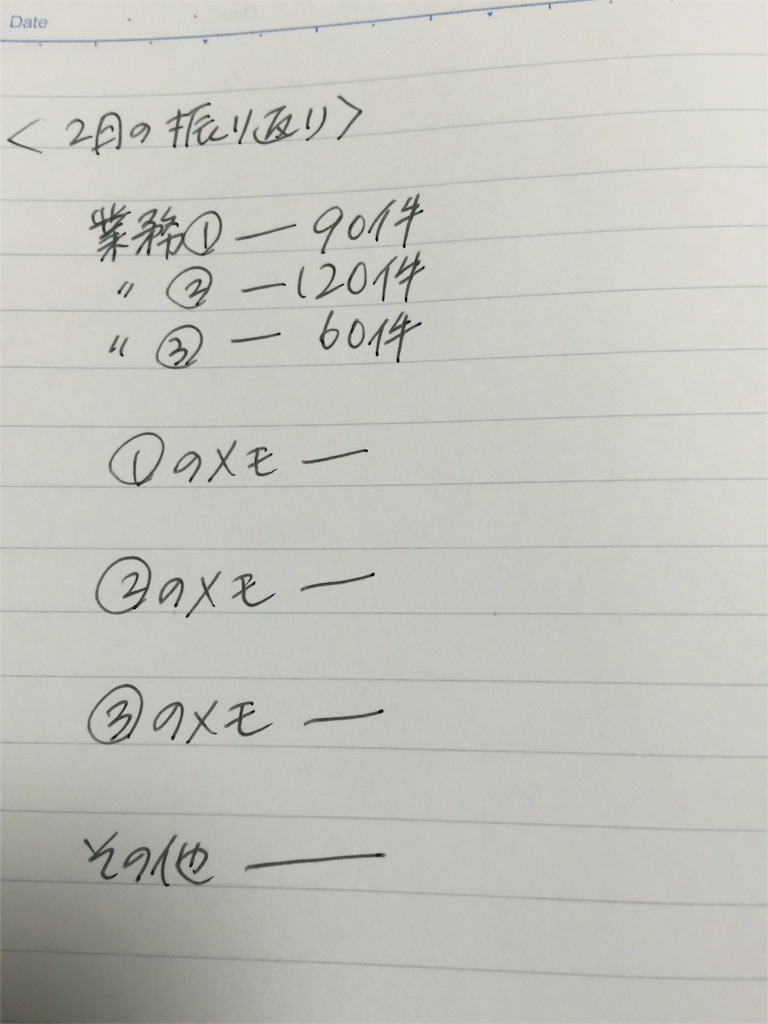 Date
<2月の振り返り>
業務① — 90件
〃 ② — 120件
〃 ③ — 60件
①のメモ —
②のメモ —
③のメモ —
その他 —